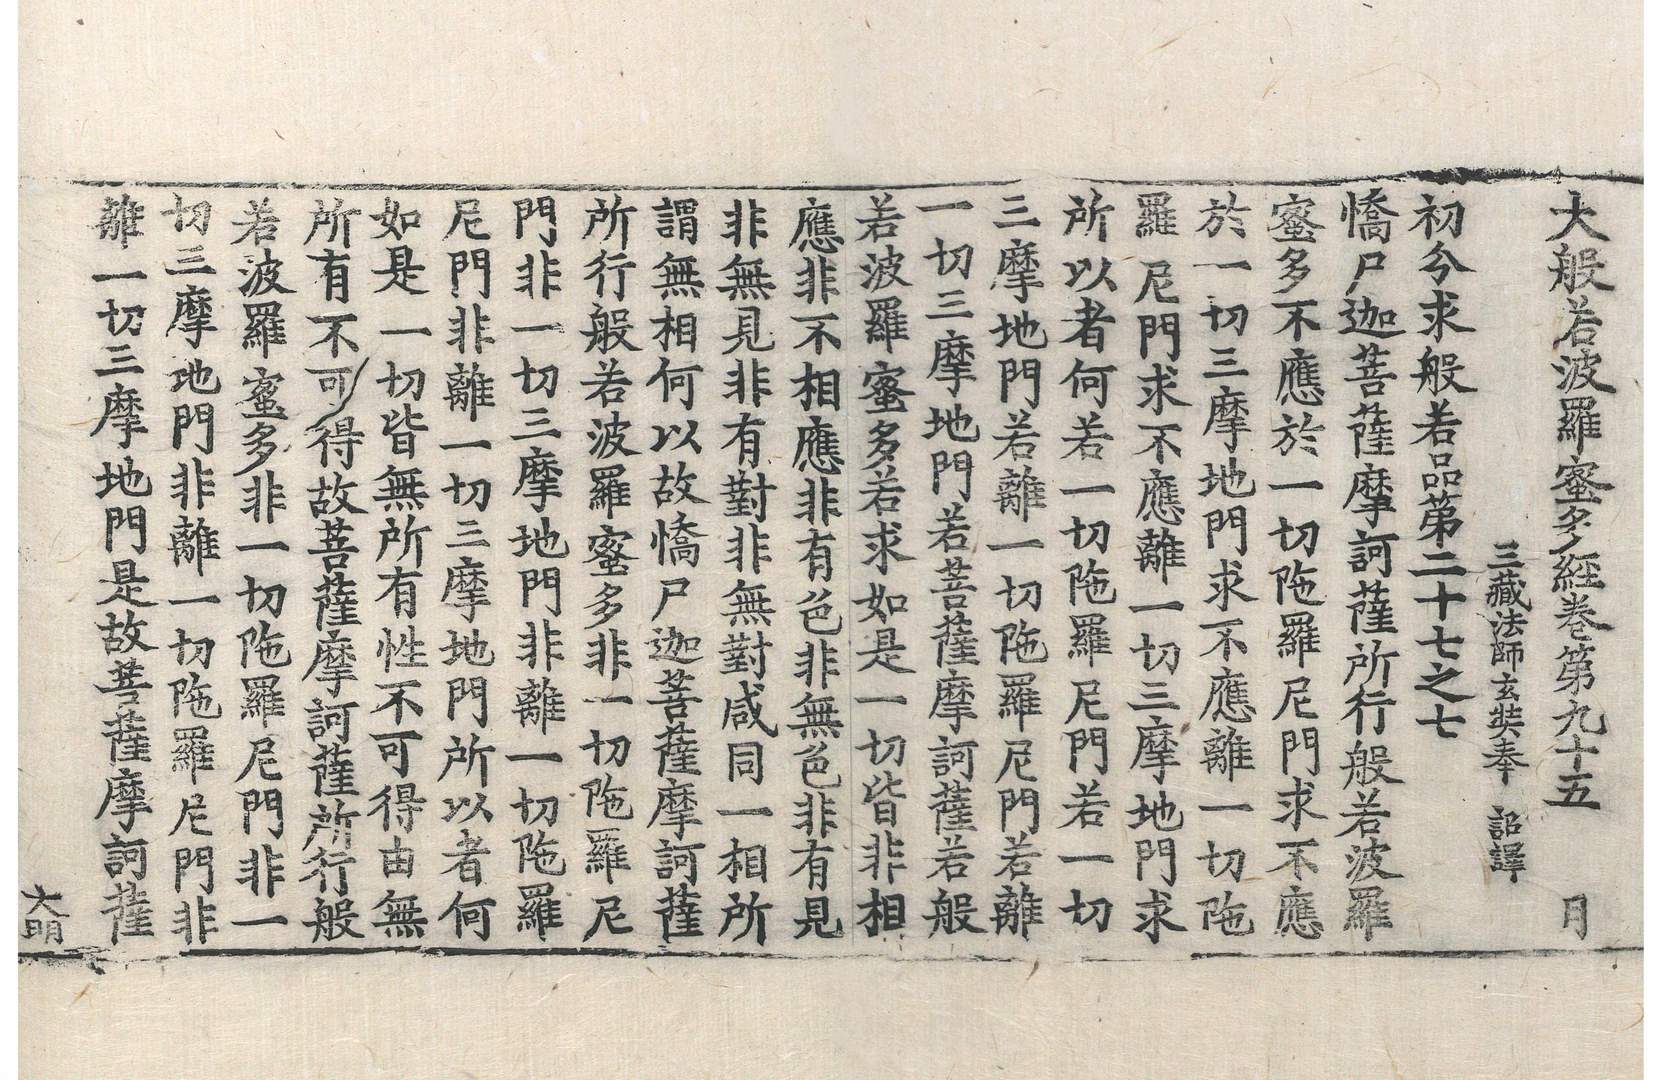 大般若波羅蜜多經卷第九十五　月
三藏法師玄奘奉　詔譯
初分求般若品第二十七之七
憍尸迦菩薩摩訶薩所行般若波羅
蜜多不應於一切陁羅尼門求不應
於一切三摩地門求不應離一切陁
羅尼門求不應離一切三摩地門求
所以者何若一切陁羅尼門若一切
三摩地門若離一切陁羅尼門若離
一切三摩地門若菩薩摩訶薩若般
若波羅蜜多若求如是一切皆非相
應非不相應非有色非無色非有見
非無見非有對非無對咸同一相所
謂無相何以故憍尸迦菩薩摩訶薩
所行般若波羅蜜多非一切陁羅尼
門非一切三摩地門非離一切陁羅
尼門非離一切三摩地門所以者何
如是一切皆無所有性不可得由無
所有不可得故菩薩摩訶薩所行般
若波羅蜜多非一切陁羅尼門非一
切三摩地門非離一切陁羅尼門非
離一切三摩地門是故菩薩摩訶薩
大明